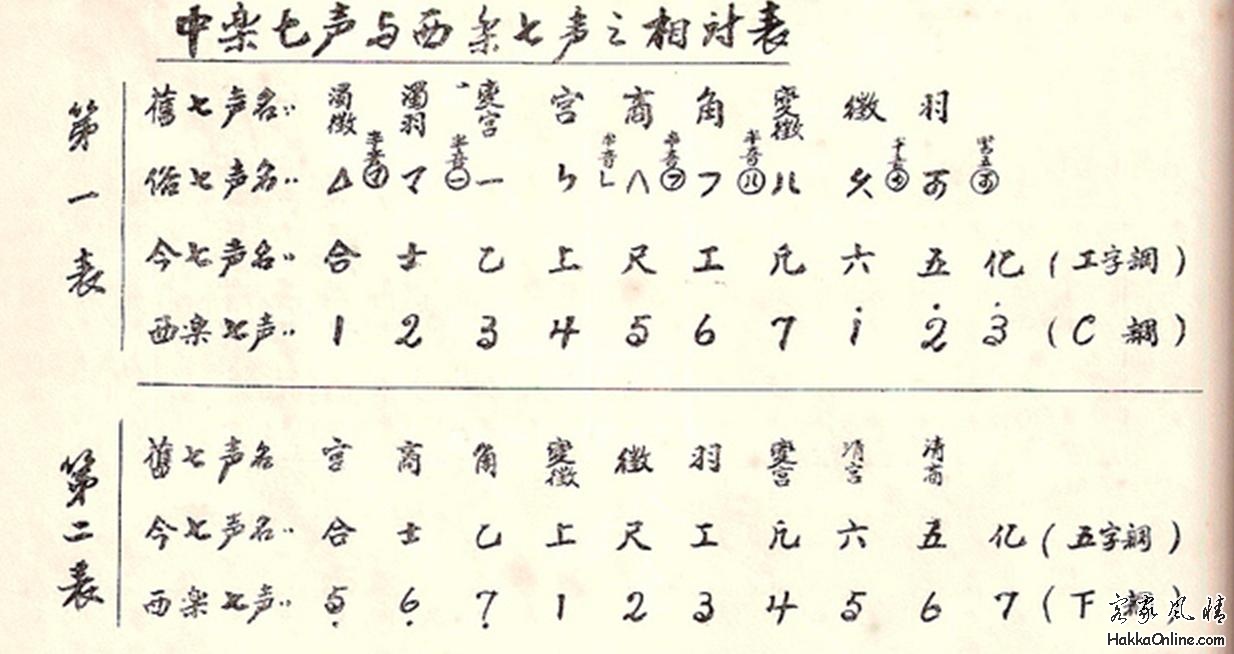 中楽七声与西楽七声之相対表
第一表
舊七声名‥ 濁徵 濁羽 變宮 宮 商 角 變徵 徵 羽
半音 半音 半音 半音 半音
俗七声名‥ 厶 マ 一 ㄣ ㄟ フ 儿 久
今七声名‥ 合 士 乙 上 尺 工 凡 六 五 化 (工字調)
西楽七声‥ 1 2 3 4 5 6 7 1̇ 2̇ 3̇ (C 調)
第二表
舊七声名 宮 商 角 變徵 徵 羽 變宮 清宮 清商
今七声名‥ 合 士 乙 上 尺 工 凡 六 五 化 (五字調)
西楽七声‥ 5̣ 6̣ 7̣ 1 2 3 4 5 6 7 (下 )
客家风情
HakkaOnline.com